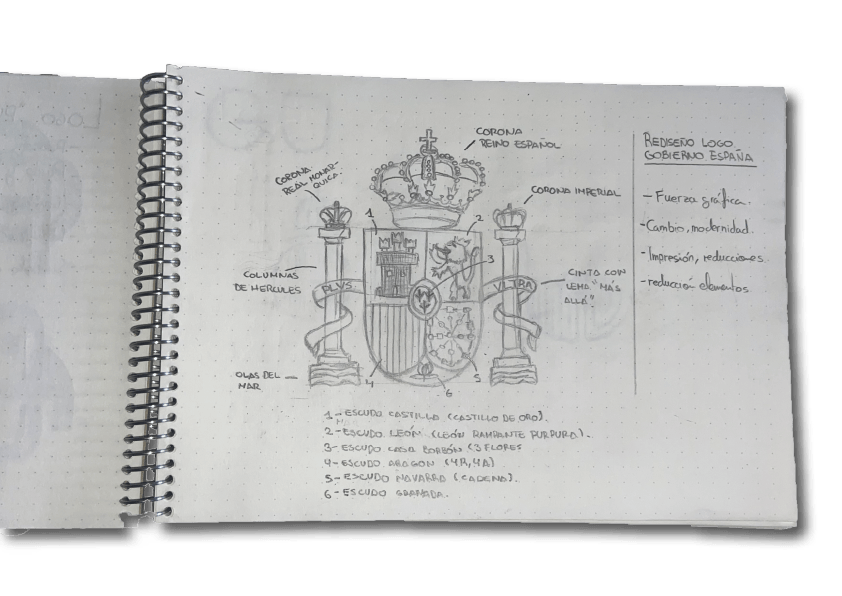 CORONA
REINO ESPAÑOL
CORONA
REAL MONAR-
QUICA.
CORONA IMPERIAL
1
2
3
COLUMNAS
DE HERCULES
PLVS
VLTRA
CINTA CON
LEMA "MÁS
ALLÁ".
OLAS DEL
MAR
4
5
6
1- ESCUDO CASTILLA (CASTILLO DE ORO).
2- ESCUDO LEÓN (LEÓN RAMPANTE PURPURA).
3- ESCUDO CASA BORBÓN (3 FLORES
4- ESCUDO ARAGON (4R, 4A)
5- ESCUDO NAVARRA (CADENA).
6- ESCUDO GRANADA.
REDISEÑO LOGO
GOBIERNO ESPAÑA
- Fuerza gráfica.
- Cambio, modernidad.
- Impresión, reducciones
- reducción elementos